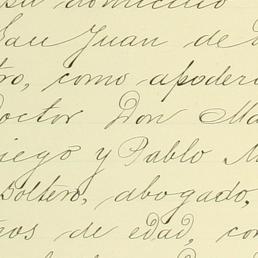 su domicilio
San Juan de
tro, como apoder
Doctor Don Ma
iego y Pablo M
soltero, abogado,
ños de edad, con